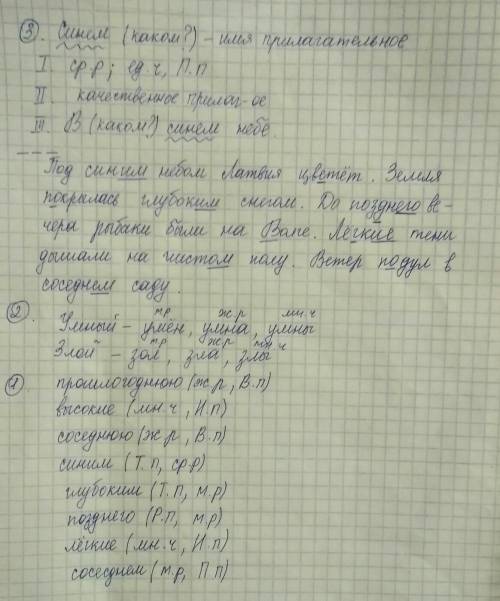 3. Синем (каком?) – имя прилагательное
I. ср.р; ед.ч, П.п
II. качественное прилаг-ое
III. В (каком?) синем небе.
Под синим небом Латвия цветёт. Земля
покрылась глубоким снегом. До позднего ве-
чера рыбаки были на Волге. Лёгкие тени
дышали на чистом полу. Ветер подул в
соседнем саду.
2. Умный – умен, умна, умны
м.р ж.р мн.ч
Злой – зол, зла, злы
м.р ж.р мн.ч
1. прошлогоднюю (ж.р, В.п)
высокие (мн.ч, И.п)
соседнюю (ж.р, В.п)
синим (Т.п, ср.р)
глубоким (Т.п, м.р)
позднего (Р.п, м.р)
лёгкие (мн.ч, И.п)
соседнем (м.р, П п)